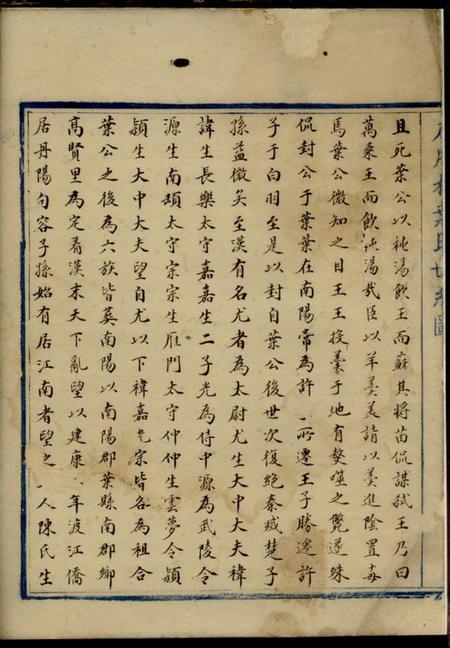 且死葉公以純湯飲王而蘇其將苗侃謀弒王乃曰
萬乘王而飲純湯哉臣以羊羹美請以羹進陰置毒
焉葉公微知之目王王投羹于地有獒噬之斃遂殊
侃封公于葉葉在南陽常為許所遷王子勝遷許
子于白羽至是以封自葉公後世次復絕秦威楚子
孫益微矣至漢有名尤者為太尉尤生大中大夫禕
諱生長樂太守嘉嘉生二子光為侍中源為武陵令
源生南頓太守宗宗生雁門太守仲仲生雲夢令潁
潁生大中大夫望自尤以下禕嘉光宗皆各為祖合
葉公之後為六族皆葬南陽以南陽郡葉縣南郡鄉
高賢里為定著漢末天下亂望以建康年渡江僑
居丹陽句容子孫始有居江南者望之人陳氏生